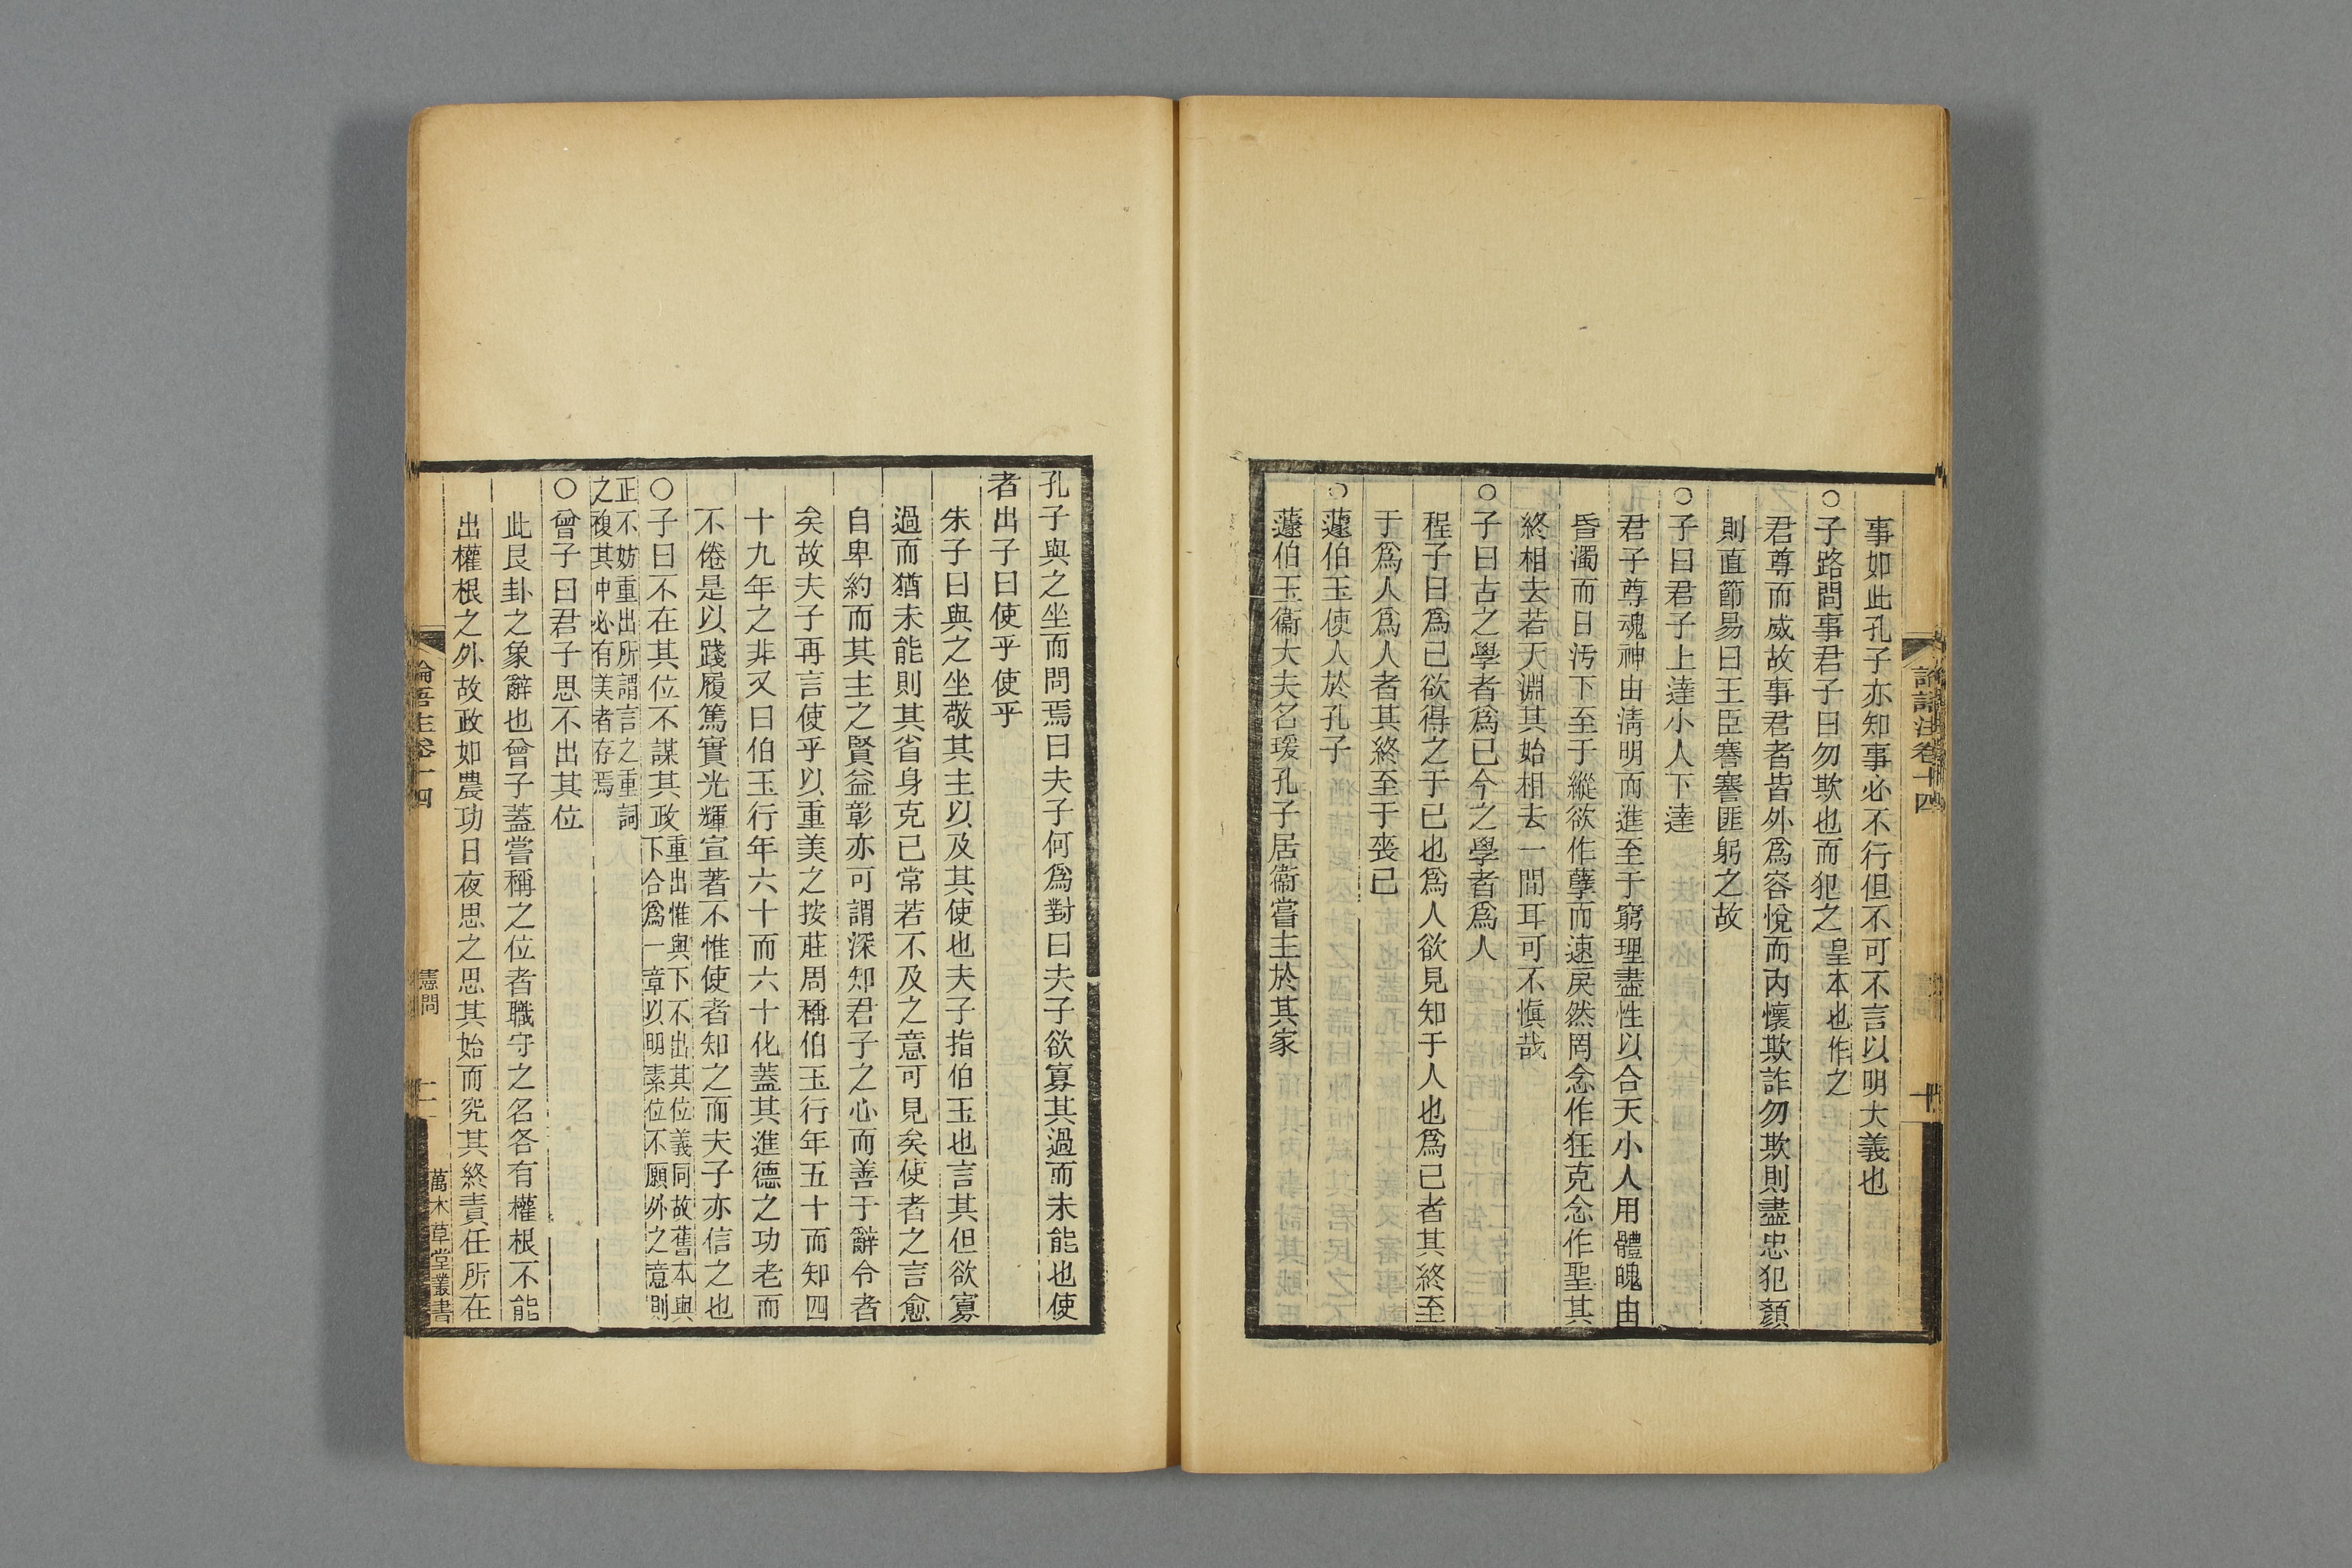 論語注卷十四
十
事如此孔子亦知事必不行但不可不言以明大義也
○子路問事君子曰勿欺也而犯之皇本也作之
君尊而威故事君者皆外爲容悅而內懷欺詐勿欺則盡忠犯顏
則直節易曰王臣謇謇匪躬之故
○子曰君子上達小人下達
君子尊魂神由淸明而進至于窮理盡性以合天小人用體魄由
昏濁而日汚下至于縱欲作孽而速戾然罔念作狂克念作聖其
終相去若天淵其始相去一間耳可不愼哉
○子曰古之學者爲己今之學者爲人
程子曰爲己欲得之于已也爲人欲見知于人也爲己者其終至
于爲人爲人者其終至于喪己
○蘧伯玉使人於孔子
蘧伯玉衞大夫名瑗孔子居衞嘗主於其家
孔子與之坐而問焉曰夫子何爲對曰夫子欲寡其過而未能也使
者出子曰使乎使乎
朱子曰與之坐敬其主以及其使也夫子指伯玉也言其但欲寡
過而猶未能則其省身克己常若不及之意可見矣使者之言愈
自卑約而其主之賢益彰亦可謂深知君子之心而善于辭令者
矣故夫子再言使乎以重美之按莊周稱伯玉行年五十而知四
十九年之非又曰伯玉行年六十而六十化蓋其進德之功老而
不倦是以踐履篤實光輝宣著不惟使者知之而夫子亦信之也
○子曰不在其位不謀其政重出惟與下不出其位義同故舊本與
下合爲一章以明素位不願外之意則
正不妨重出所謂言之重詞
之複其中必有美者存焉
○曾子曰君子思不出其位
此艮卦之象辭也曾子蓋嘗稱之位者職守之名各有權根不能
出權根之外故政如農功日夜思之思其始而究其終責任所在
論語注卷十四
憲問
萬木草堂叢書